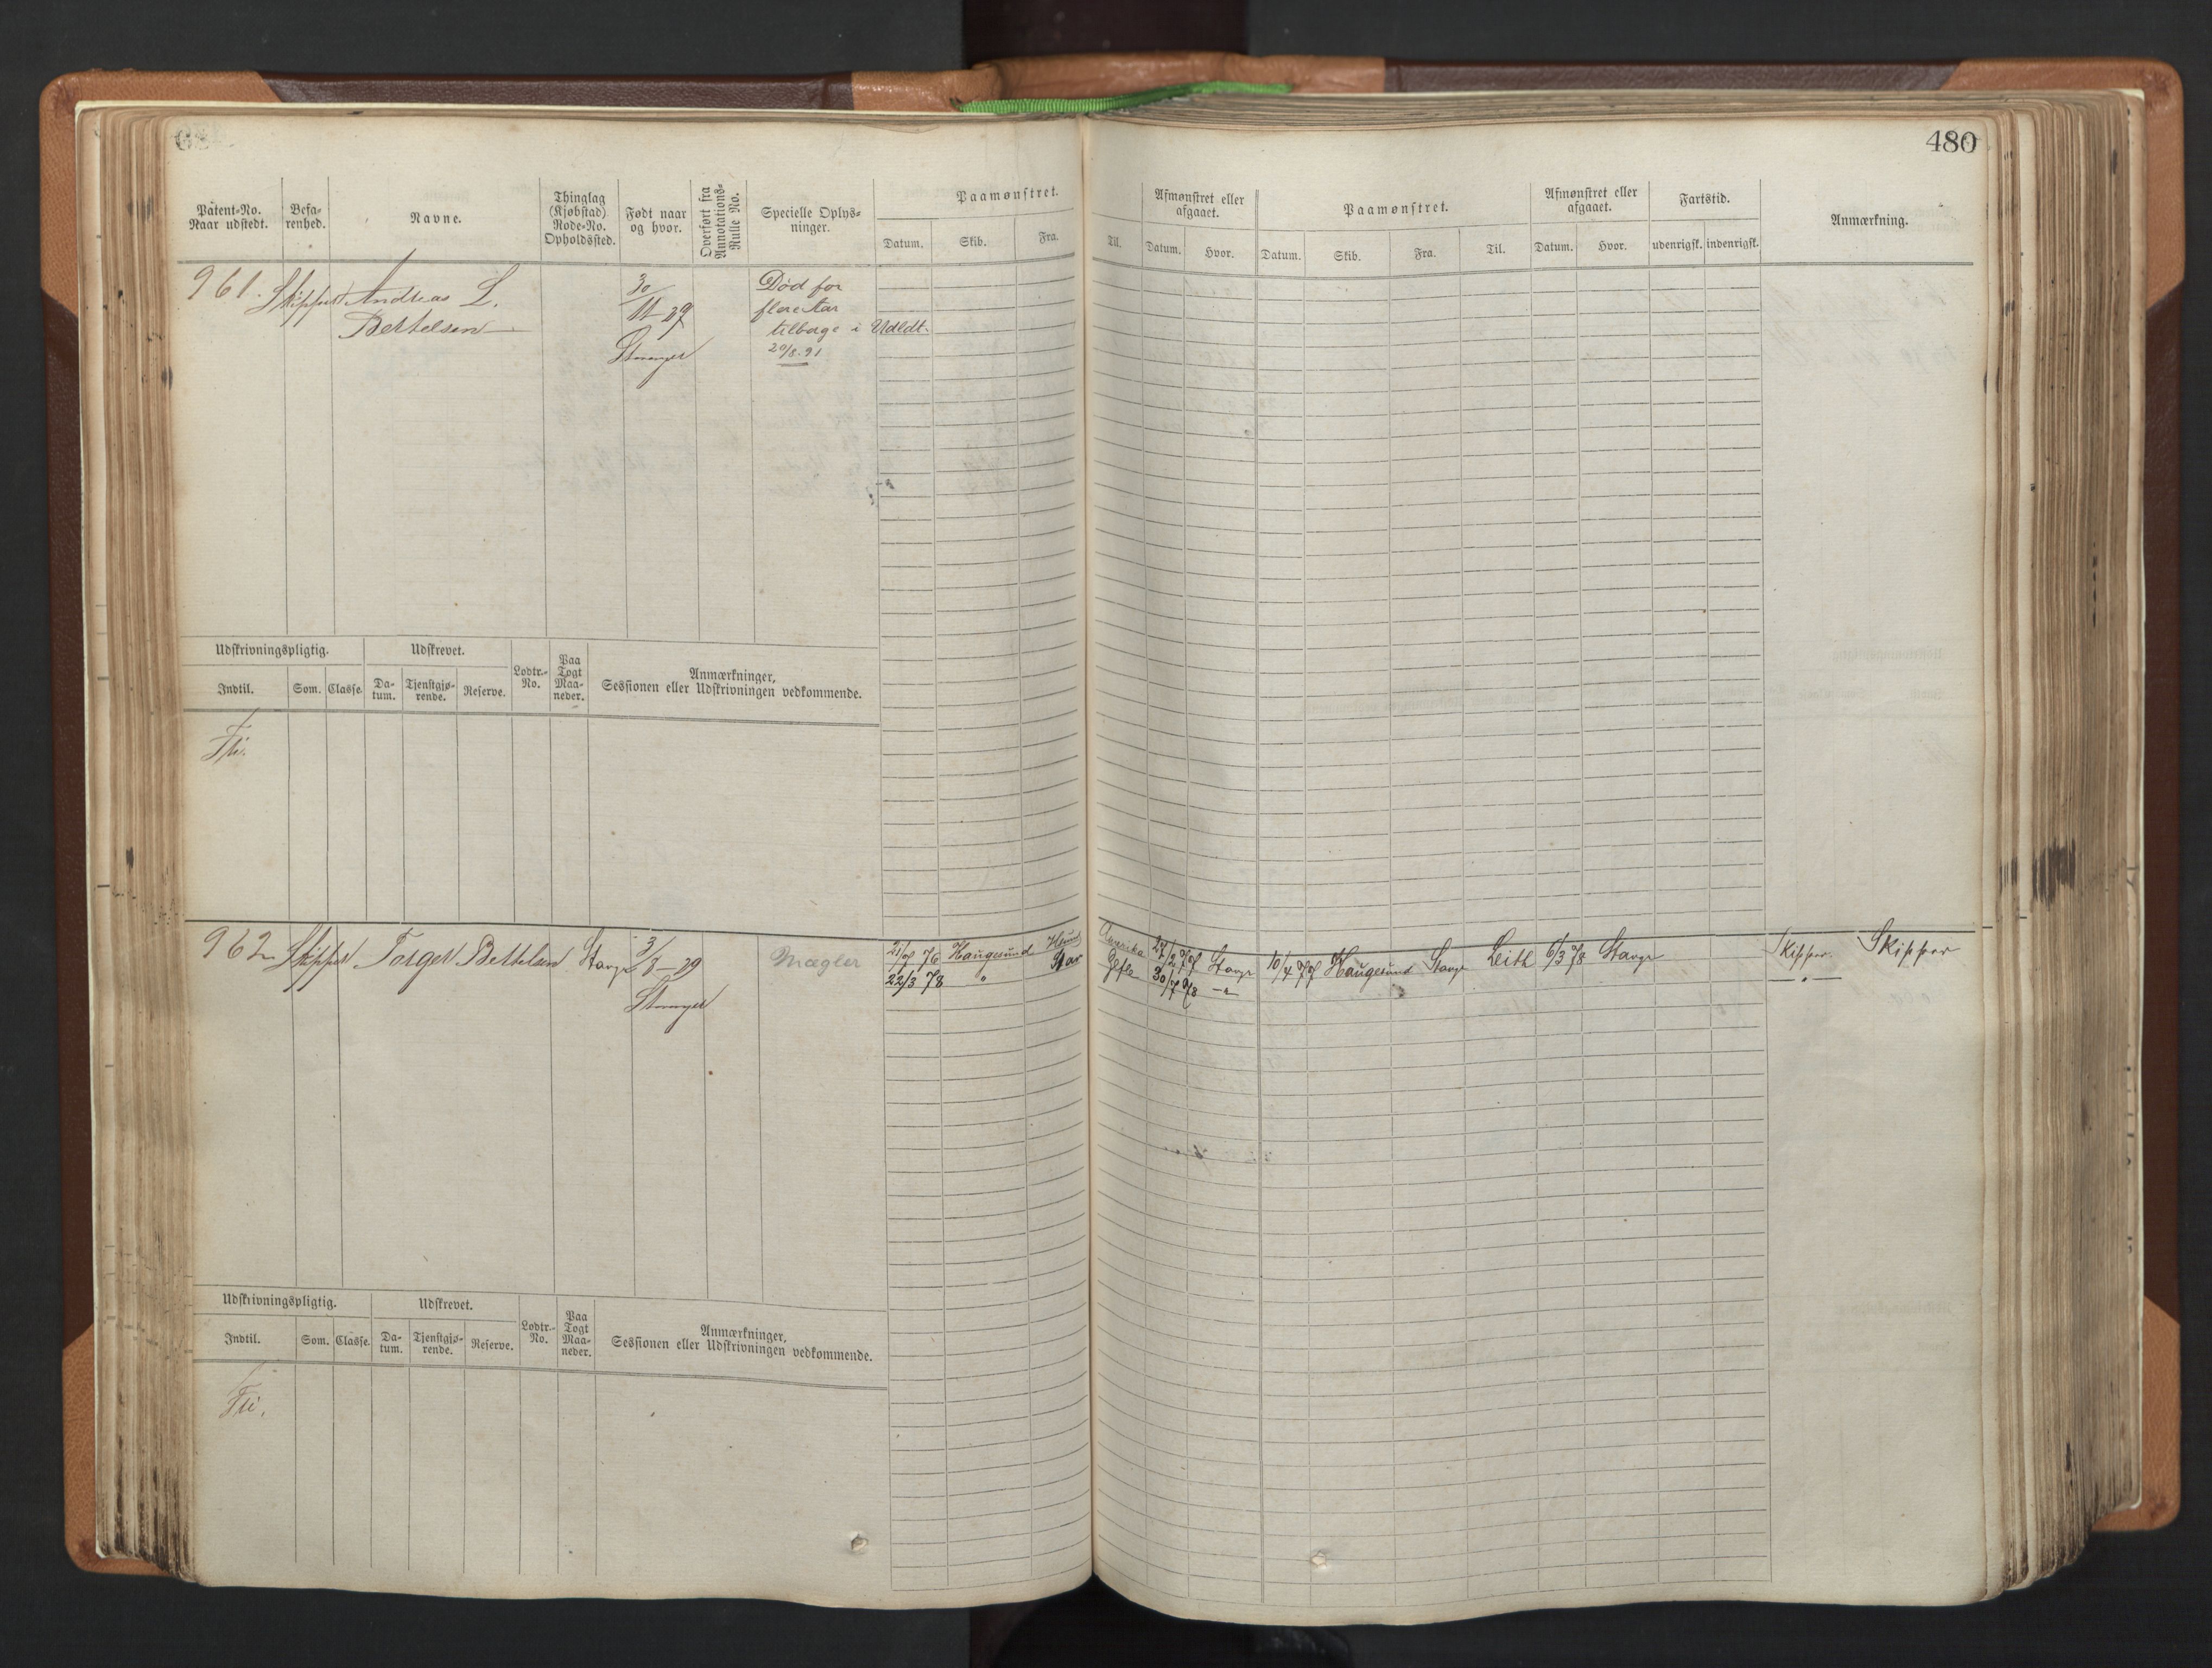 480
Patent-No.
Naar udstedt.
Befa-
renhed.
Navne.
Thinglag
(Kjøbstad)
Rode-No.
Opholdssted.
Født naar
og hvor.
Overført fra
Annotations-
Rulle No.
Specielle Oplys-
ninger.
Paamønstret.
Datum. Skib. Fra.
Til.
Afmønstret eller
afgaaet.
Datum. Hvor.
Paamønstret.
Datum. Skib. Fra. Til.
Afmønstret eller
afgaaet.
Datum. Hvor.
Fartstid.
udenrigsk. indenrigsk.
Anmærkning.
961. Skipper Andreas L.
Bertelsen
30/11 29
Stavanger
Død for
flere Aar
tilbage i Udldt.
20/8. 91
Udskrivningspligtig. Udskrevet.
Indtil. Som. Classe. Da-
tum. Tjenstgjø-
rende. Reserve.
Lodtr.-
No.
Paa
Togt
Maa-
neder.
Anmærkninger,
Sessionen eller Udskrivningen vedkommende.
Fri.
962 Skipper Torger Bertelsen Stavgr 3/8-29
Stavanger
Mægler
21/7 76 Haugesund Hsund Amerika 27/2 77 Stavgr 10/4 77 Haugesund Stavgr Leith 6/3 78 Stavgr Skipper. Skipper
22/3 78 " Stav Gefle 30/7 78 -"- -"-
Udskrivningspligtig. Udskrevet.
Indtil. Som. Classe. Da-
tum. Tjenstgjø-
rende. Reserve.
Lodtr.-
No.
Paa
Togt
Maa-
neder.
Anmærkninger,
Sessionen eller Udskrivningen vedkommende.
Fri.